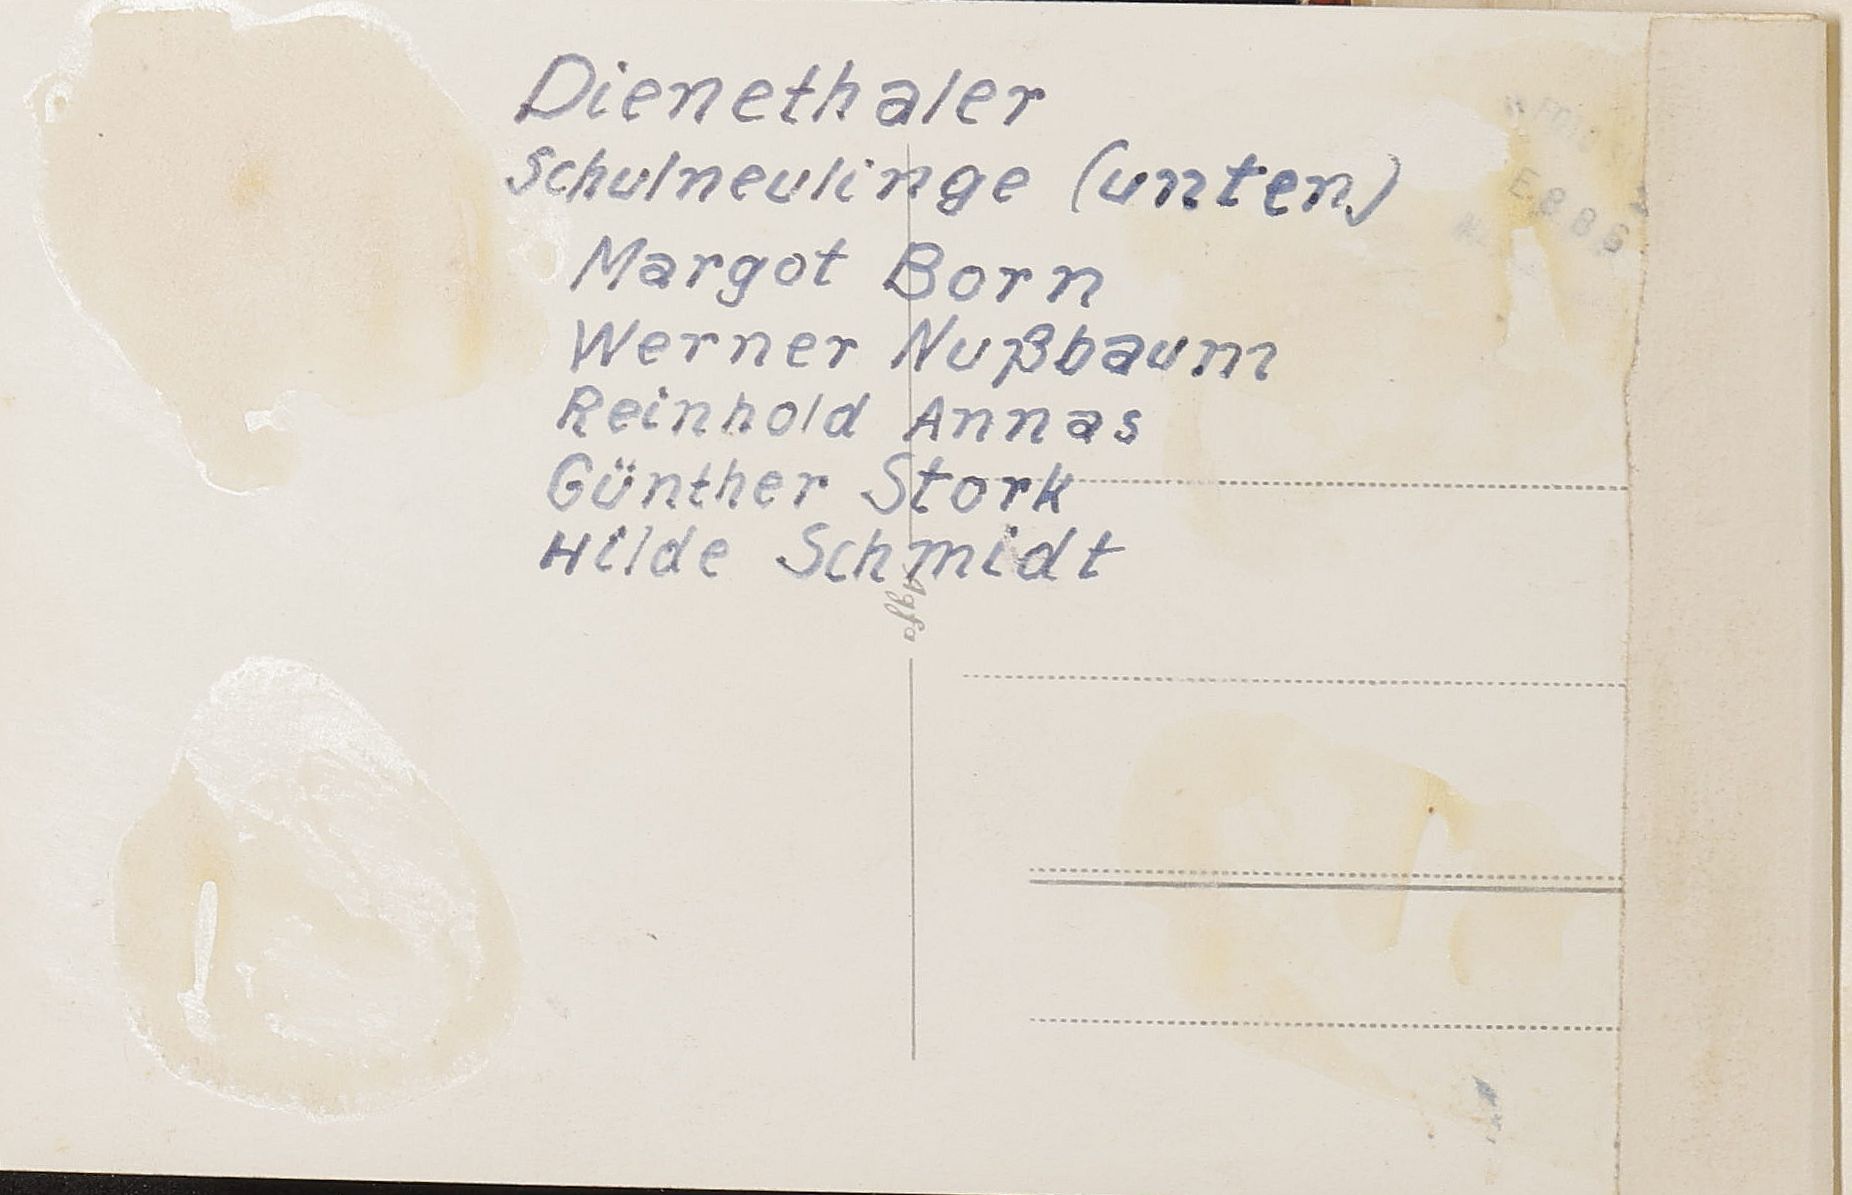 Dienethaler
Schulneulinge (unten)
Margot Born
Werner Nußbaum
Reinhold Annas
Günther Stork
Hilde Schmidt
Agfa